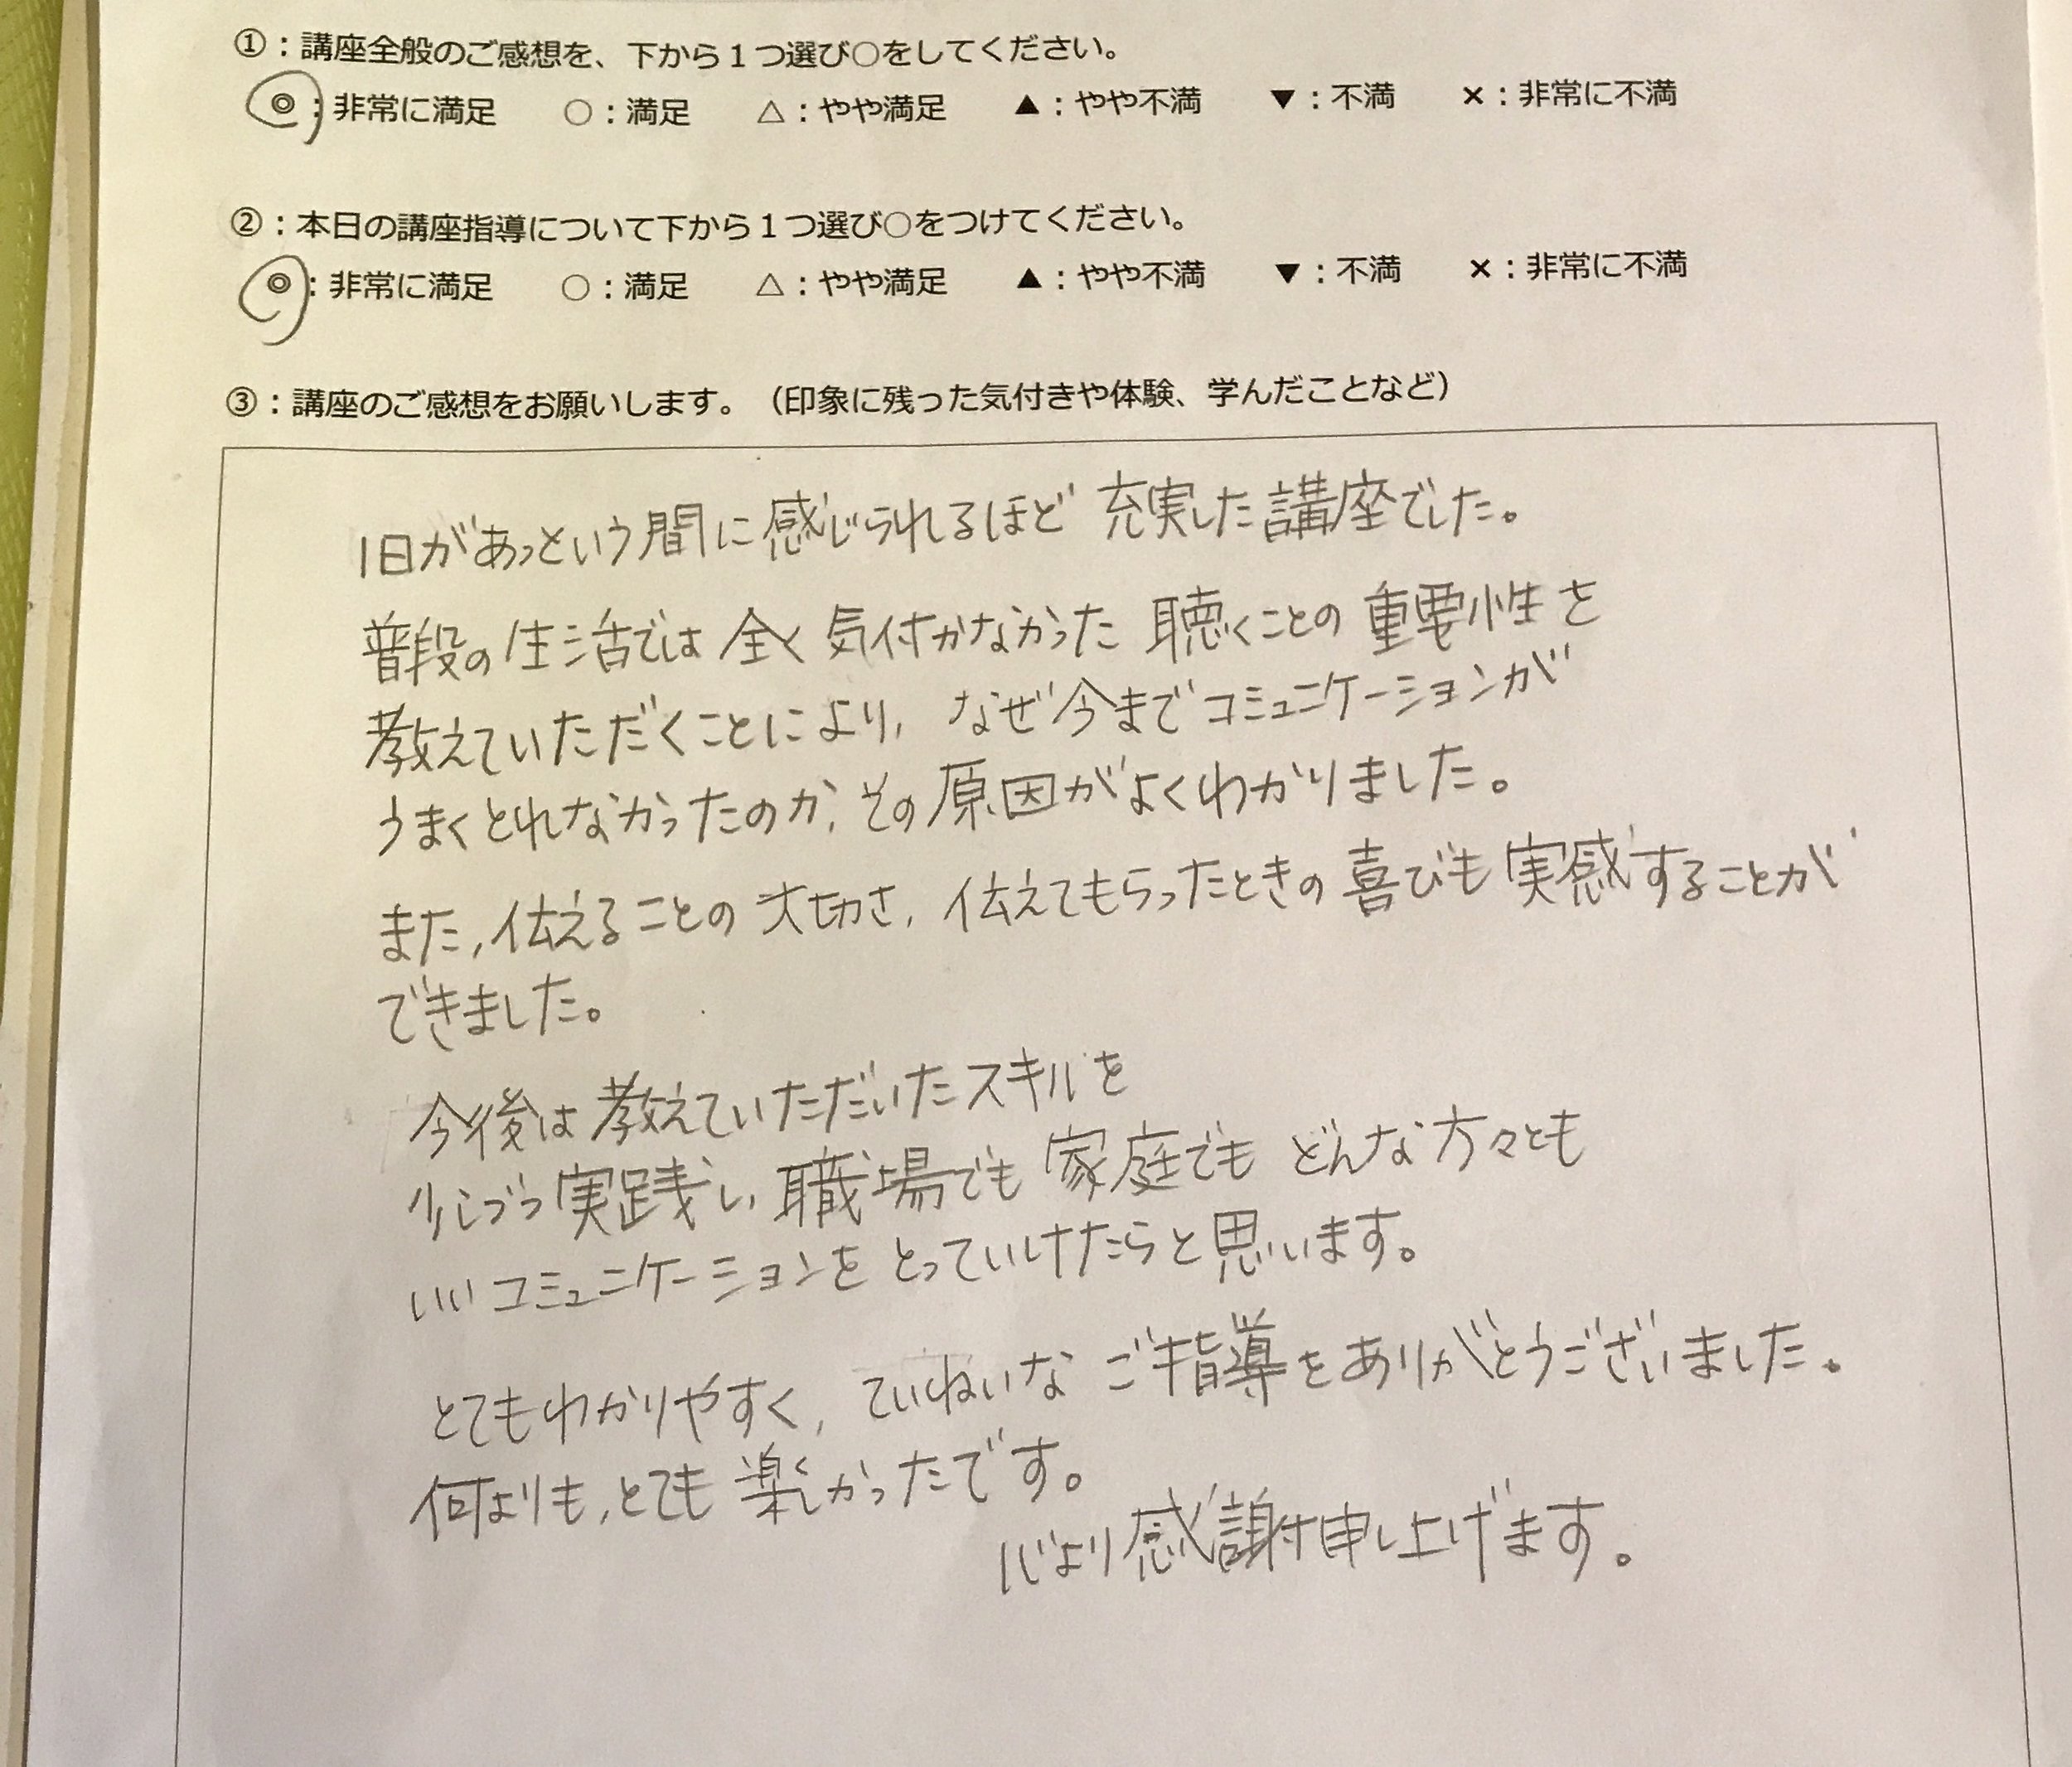 ①：講座全般のご感想を、下から１つ選び○をしてください。
◎：非常に満足　○：満足　△：やや満足　▲：やや不満　▼：不満　×：非常に不満
②：本日の講座指導について下から１つ選び○をつけてください。
◎：非常に満足　○：満足　△：やや満足　▲：やや不満　▼：不満　×：非常に不満
③：講座のご感想をお願いします。（印象に残った気付きや体験、学んだことなど）
1日があっという間に感じられるほど 充実した講座でした。
普段の生活では全く気付かなかった 聴くことの重要性を
教えていただくことにより, なぜ今までコミュニケーションが
うまくとれなかったのか, その原因がよくわかりました。
また, 伝えることの大切さ, 伝えてもらったときの喜びも実感することが
できました。
今後は教えていただいたスキルを
少しづつ実践し, 職場でも家庭でもどんな方々とも
いいコミュニケーションをとっていけたらと思います。
とてもわかりやすく, ていねいなご指導をありがとうございました。
何よりも, とても楽しかったです。
心より感謝申し上げます。